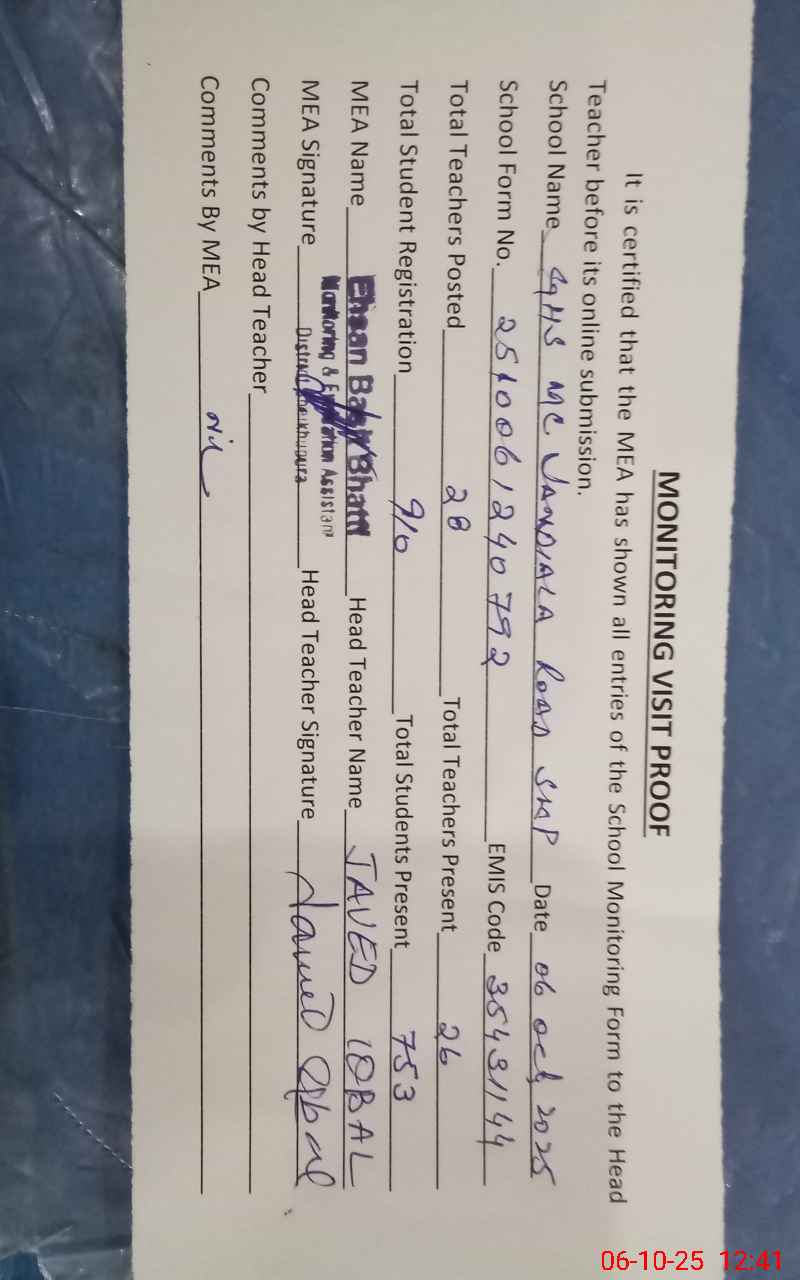 MONITORING VISIT PROOF
It is certified that the MEA has shown all entries of the School Monitoring Form to the Head
Teacher before its online submission.
School Name GHS MC JANDIALA ROAD SKP Date 06 Oct, 2025
School Form No. 251006/240792 EMIS Code 35431144
Total Teachers Posted 28 Total Teachers Present 26
Total Student Registration 910 Total Students Present 753
MEA Name Ehsan Bhatti Head Teacher Name JAVED IQBAL
Monitoring & Evaluation Assistant
MEA Signature District Sheikhupura Head Teacher Signature Javed Iqbal
Comments by Head Teacher
Comments By MEA Nil
06-10-25 12:41